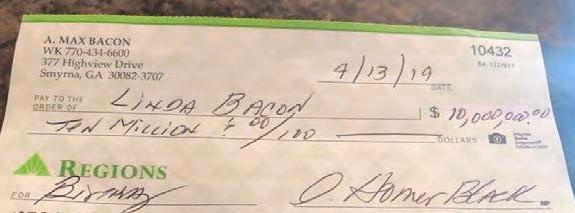 A. MAX BACON
WK 770-434-6600
377 Highview Drive
Smyrna, GA 30082-3707
10432
4/13/19
DATE
PAY TO THE
ORDER OF
LINDA BACON
$ 10,000,000.00
TEN MILLION & 00/100
DOLLARS
REGIONS
FOR
MP